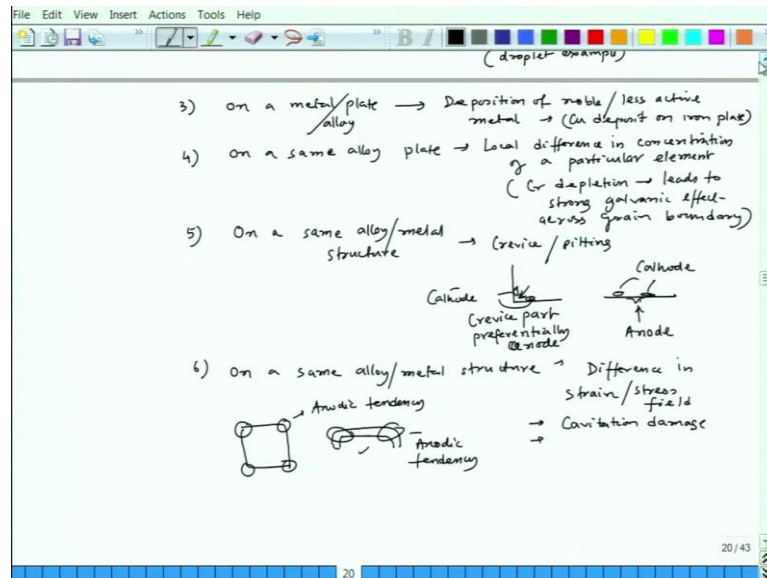 File Edit View Insert Actions Tools Help
B I
(droplet example)
3) on a metal/plate → Deposition of noble/less active
/alloy metal → (Cu deposit on iron plate)
4) on a same alloy plate → Local difference in concentration
of a particular element
(Cr depletion → leads to
strong galvanic effect
across grain boundary)
5) On a same alloy/metal → Crevice/pitting
structure
Cathode
Cathode
Crevice part
preferentially
anode
Anode
6) on a same alloy/metal structure → Difference in
strain/stress
field
Anodic tendency
→ Cavitation damage
→
Anodic
tendency
20/43
20